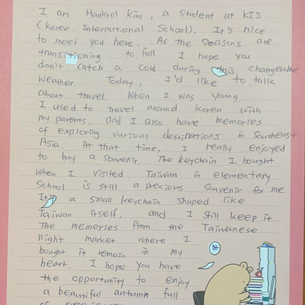 I am Hankyol Kim, a student at KIS
(Korea International School). It's nice
to meet you here. As the seasons are
transitioning to fall I hope you
don't catch a cold during this changeable
weather. Today, I'd like to talk
about travel. When I was young
I used to travel around Korea with
my parents, and I also have memories
of exploring various destinations in Southeast
Asia. At that time, I really enjoyed
to buy a souvenir. The keychain I bought
when I visited Taiwan in elementary
School is still a precious souvenir for me.
It's a small keychain shaped like
Taiwan itself, and I still keep it.
The memories from the Taiwanese
night market where I
bought it remain in my
heart. I hope you have
the opportunity to enjoy
a beautiful autumn full
of